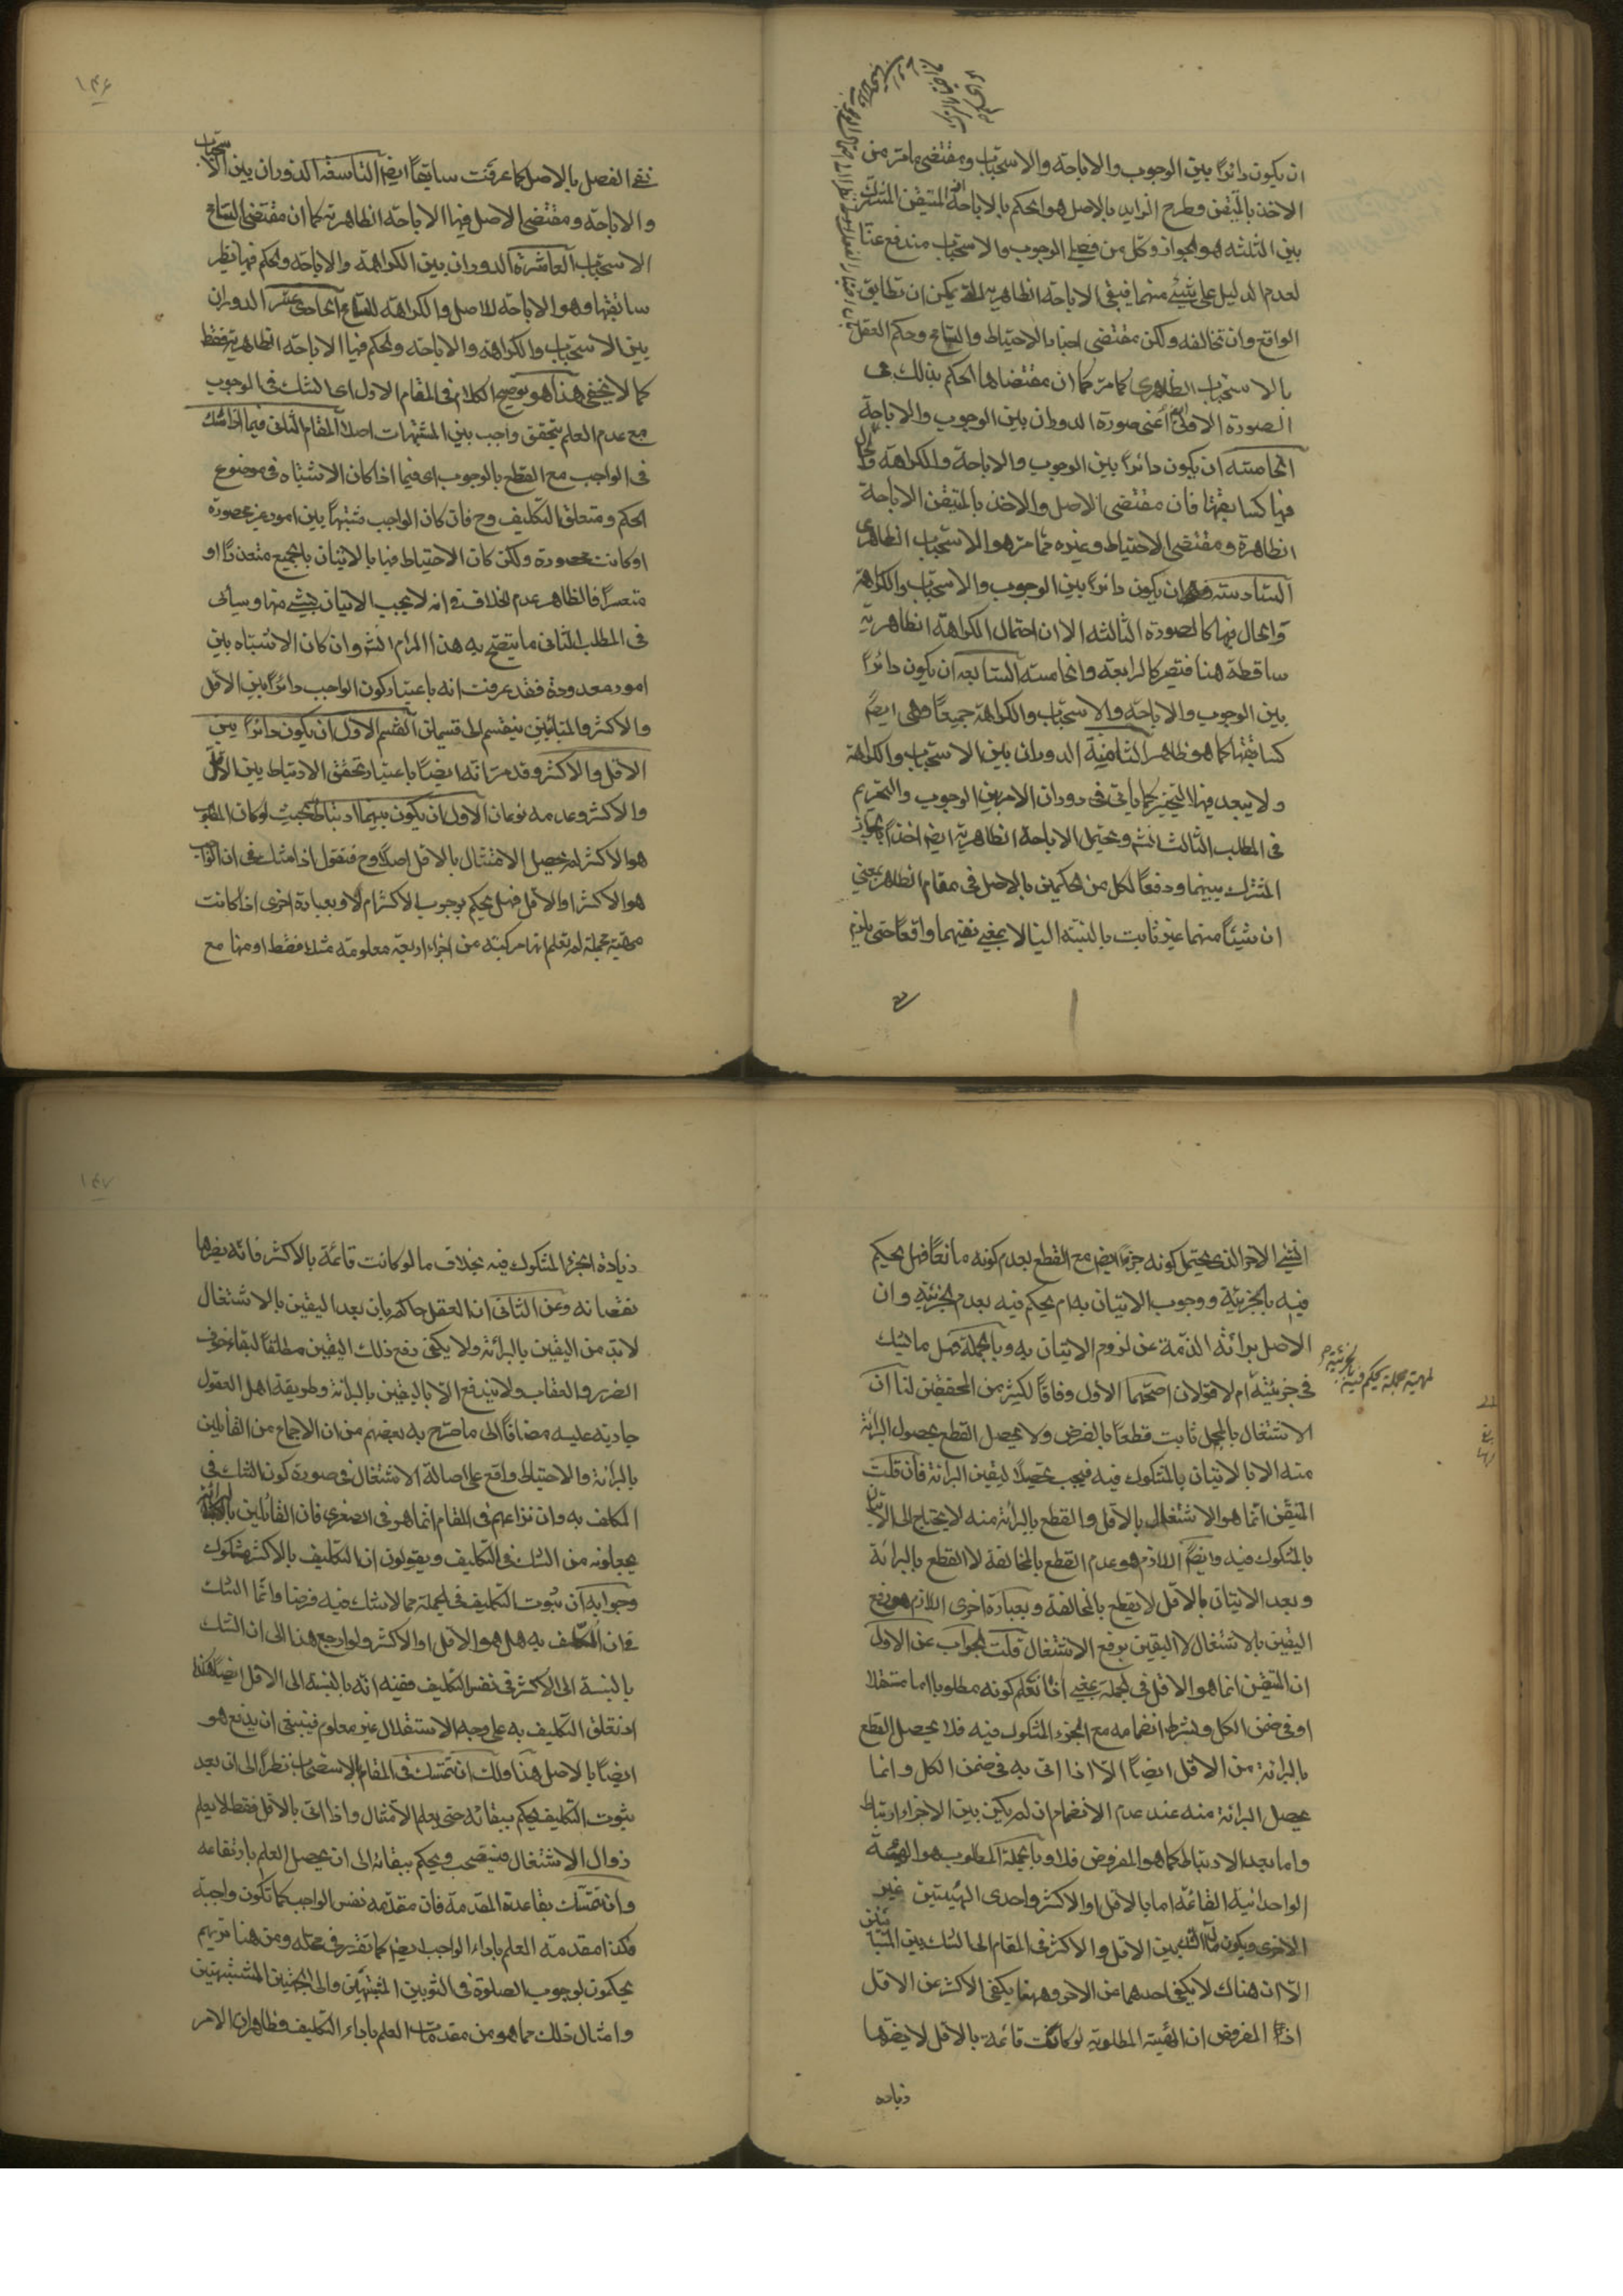 ان يكون دائراً بين الوجوب والاباحة والاستحباب ومقتضى مامر من
الاخذ بالمتيقن وطرح الزايد بالاصل هو الحكم بالاباحة المتيقن المشترك
بين الثلثه هو الجواز وكل من فصلى الوجوب والاستحباب مندفع عنا
لعدم الدليل على شيئ منهما فيبقى الاباحة الظاهرية التى يمكن ان تطابق
الواقع وان تخالفه ولكن مقتضى اخبار الاحتياط والتسامح وحكم العقل
بالاستحباب الظاهرى كما مر كما ان مقتضاها الحكم بذلك فى
الصورة الاولى اعنى صورة الدوران بين الوجوب والاباحة
الخامسة ان يكون دائراً بين الوجوب والاباحة والكراهة والحال
فيها كسابقتها فان مقتضى الاصل والاخذ بالمتيقن الاباحة
الظاهرة ومقتضى الاحتياط وغيره مما مر هو الاستحباب الظاهرى
السادسة ان يكون دائراً بين الوجوب والاستحباب والكراهة
والحال فيها كالصورة الثالثة الا ان احتمال الكراهة الظاهرية
ساقطة هنا فتصير كالرابعة والخامسة السابعة ان يكون دائراً
بين الوجوب والاباحة والاستحباب والكراهة جميعاً وهى ايضً
كسابقتها كما هو ظاهر الثامنة الدوران بين الاستحباب والكراهة
ولا يبعد فيها التخيير كما ياتى فى دوران الامر بين الوجوب والتحريم
فى المطلب الثالث انشم ويحتمل الاباحة الظاهرية ايضم اخذاً بالجواز
المشترك بينهما ودفعاً لكل من الحكمين بالاصل فى مقام الظاهر بمعنى
ان شيئاً منهما غير ثابت بالنسبة الينا لا بمعنى نفيهما واقعاً حتى يلزم
١٤٦
نفى الفصل بالاصل كما عرفت سابقاً ايضم التاسعة الدوران بين الاستحباب
والاباحة ومقتضى الاصل فيها الاباحة الظاهرية كما ان مقتضى التسامح
الاستحباب العاشرة الدوران بين الكراهة والاباحة والحكم فيها نظير
سابقتها وهو الاباحة للاصل والكراهة للتسامح الحادى عشر الدوران
بين الاستحباب والكراهة والاباحة والحكم فيها الاباحة الظاهرية فقط
كما لا يخفى هذا هو توضيح الكلام فى المقام الاول اى الشك فى الوجوب
مع عدم العلم بتحقق واجب بين المشتبهات اصلاً المقام الثانى فيما اذا شك
فى الواجب مع القطع بالوجوب اى فيما اذا كان الاشتباه فى موضوع
الحكم ومتعلق التكليف وح فان كان الواجب مشتبهاً بين امور غير محصورة
او كانت محصورة ولكن كان الاحتياط فيها بالاتيان بالجميع متعذراً او
متعسراً فالظاهر عدم الخلاف فى انه لا يجب الاتيان بشيئ منها وسيأتى
فى المطلب الثانى ما يتضح به هذا المرام انشم وان كان الاشتباه بين
امور معدودة فقد عرفت انه باعتبار كون الواجب دائراً بين الاقل
والاكثر والمتبائنين ينقسم الى قسمين القسم الاول ان يكون دائراً بين
الاقل والاكثر وقد مر انه ايضاً باعتبار تحقق الارتباط بين الاقل
والاكثر وعدمه نوعان الاول ان يكون بينهما ارتباط بحيث لو كان المطلوب
هو الاكثر لم يحصل الامتثال بالاقل اصلاً وح فنقول اذا شك فى ان الواجب
هو الاكثر او الاقل فهل يحكم بوجوب الاكثر ام لا وبعبارة اخرى اذا كانت
مهية مجملة لم نعلم انها مركبة من اجزاء اربعة معلومة مثلاً فقط او منها مع
الشيئ الاخر الذى يحتمل كونه جزءً ايضم مع القطع بعدم كونه مانعاً فهل يحكم
فيه بالجزئية ووجوب الاتيان به ام يحكم فيه بعدم الجزئية وان
الاصل برائة الذمة عن لزوم الاتيان به وبالجملة هل ما يشك
لمهية مجملة يحكم فيه بالجزئية
فى جزئيته ام لا قولان اصحهما الاول وفاقاً لكثير من المحققين لنا ان
الاشتغال بالمجمل ثابت قطعاً بالفرض ولا يحصل القطع بحصول البرائة
منه الا بالاتيان بالمشكوك فيه فيجب تحصيلاً ليقين البرائة فان قلت
المتيقن انما هو الاشتغال بالاقل والقطع بالبرائة منه لا يحتاج الى الاتيان
بالمشكوك فيه وايضً اللازم هو عدم القطع بالمخالفة لا القطع بالبرائة
وبعد الاتيان بالاقل لا نقطع بالمخالفة وبعبارة اخرى اللازم هو رفع
اليقين بالاشتغال لا اليقين برفع الاشتغال قلت الجواب عن الاول
ان المتيقن انما هو الاقل فى الجملة بمعنى انا نعلم كونه مطلوبا اما مستقلا
او فى ضمن الكل وبشرط انضمامه مع الجزء المشكوك فيه فلا يحصل القطع
بالبرائة من الاقل ايضاً الا اذا اتى به فى ضمن الكل وانما
يحصل البرائة منه عند عدم الانضمام ان لم يكن بين الاجزاء ارتباط
واما بعد الارتباط كما هو المفروض فلا وبالجملة المطلوب هو الهيئة
الواحدانية القائمة اما بالاقل او الاكثر واحدى الهيئتين غير
الاخرى ويكون مآل الشك بين الاقل والاكثر فى المقام الى الشك بين المتبائنين
الا ان هناك لا يكفى احدهما عن الاخر وههنا يكفى الاكثر عن الاقل
اذ المفروض ان الهيئة المطلوبة لو كانت قائمة بالاقل لا يضرها
زيادة
١٤٧
زيادة الجزء المشكوك فيه بخلاف ما لو كانت قائمة بالاكثر فانه يضرها
نقصانه وعن الثانى ان العقل حاكم بان بعد اليقين بالاشتغال
لا بد من اليقين بالبرائة ولا يكفى رفع ذلك اليقين مطلقاً لبقاء خوف
الضرر والعقاب ولا يندفع الا باليقين بالبرائة وطريقة اهل العقول
جارية عليه مضافاً الى ما صرح به بعضهم من ان الاجماع من القائلين
بالبرائة والاحتياط واقع على اصالة الاشتغال فى صورة كون الشك فى
المكلف به وان نزاعهم فى المقام انما هو فى الصغرى فان القائلين بالبرائة
يجعلونه من الشك فى التكليف ويقولون ان التكليف بالاكثر مشكوك
وجوابه ان ثبوت التكليف فى الجملة مما لا شك فيه فرضا وانما الشك
فى ان المكلف به هل هو الاقل او الاكثر ولو ارجع هذا الى ان الشك
بالنسبة الى الاكثر فى نفس التكليف ففيه انه بالنسبة الى الاقل ايضاً هكذا
اذ تعلق التكليف به على وجه الاستقلال غير معلوم فينبغى ان يدفع هو
ايضاً بالاصل هذا ولك ان تتمسك فى المقام بالاستصحاب نظراً الى ان بعد
ثبوت التكليف يحكم ببقائه حتى يعلم الامتثال واذا اتى بالاقل فقط لا يعلم
زوال الاشتغال فيستصحب ويحكم ببقائه الى ان يحصل العلم بارتفاعه
وان تتمسك بقاعدة المقدمة فان مقدمة نفس الواجب كما تكون واجبة
فكذا مقدمة العلم باداء الواجب ايضم كما تقرر فى محله ومن هنا تريهم
يحكمون بوجوب الصلوة فى الثوبين المشتبهين والى الجهتين المشتبهتين
وامثال ذلك مما هو من مقدمات العلم باداء التكليف وظاهر ان الامر